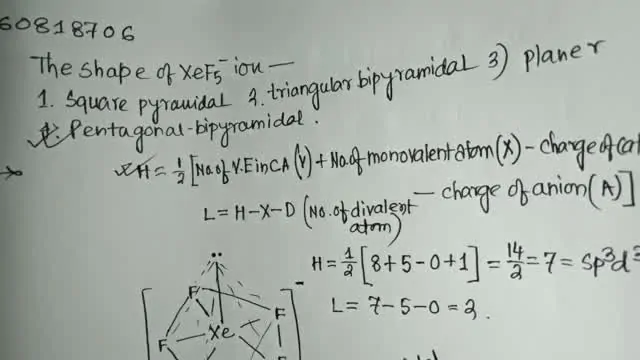 60818706
The shape of XeF5⁻ ion —
1. Square pyramidal 2. triangular bipyramidal 3) planer
4. Pentagonal-bipyramidal.
H = 1/2 [No. of V.E in CA (V) + No. of monovalent atom (X) - charge of cat
- charge of anion (A)]
L = H-X-D (No. of divalent atom)
H = 1/2 [8+5-0+1] = 14/2 = 7 = sp³d³
L = 7-5-0 = 2.
F
F
Xe
F